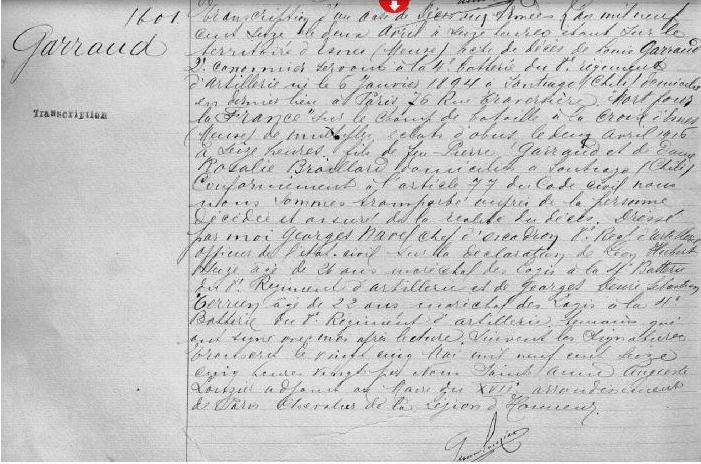 1601
Garraud
Transcription
Transcription d'un acte de Décès aux Armées. L'an mil neuf
cent seize le deux Avril à seize heures, étant sur le
territoire d'Esnes (Meuse) acte de décès de Louis Garraud
2e canonnier servant à la 4e batterie du 8e régiment
d'artillerie né le 6 Janvier 1894 à Santiago (Chili) domicilié
en dernier lieu à Paris, 76 Rue Traversière, Mort pour
la France sur le champ de bataille à la croix d'Esnes
(Meuse) de multiples éclats d'obus, le deux Avril 1916
à seize heures, fils de feu Pierre Garraud et de Dame
Rosalie domiciliés à Santiago (Chili)
Conformément à l'article 77 du Code civil nous
nous sommes transporté auprès de la personne
décédée et assuré de la réalité du décès. Dressé
par moi Georges Navel chef d'escadron 8e Regt d'artillerie
officier de l'état-civil sur la déclaration de Léon Hubert
âgé de 26 ans maréchal des Logis à la 4e Batterie
du 8e Régiment d'artillerie et de Georges Henri
âgé de 22 ans maréchal des Logis à la 4e
Batterie du 8e Régiment d'artillerie témoins qui
ont signé avec moi après lecture. Suivent les Signatures
Transcrit le vingt cinq Mai mil neuf cent seize
cinq heures vingt par Nous Auguste
adjoint au Maire du XVIIe arrondissement
de Paris Chevalier de la Légion d'Honneur.